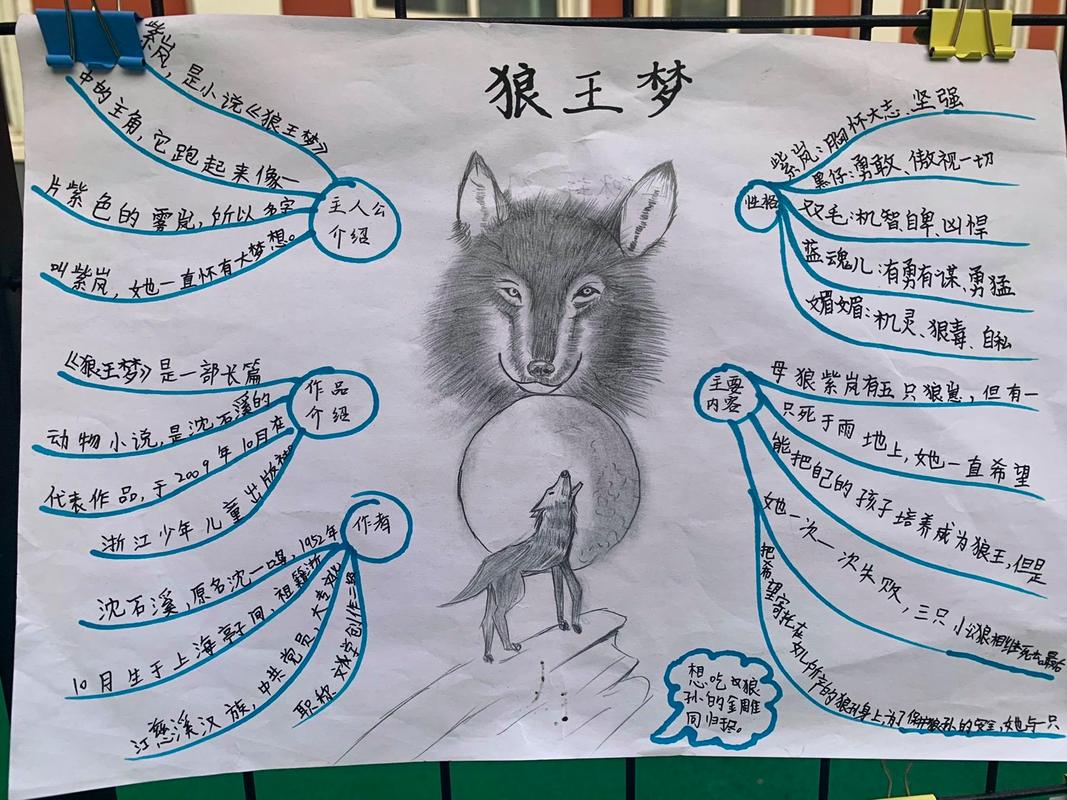 狼王梦
主人公
介绍
紫岚，是小说《狼王梦》
中的主角，它跑起来像一
片紫色的雾岚，所以名字
叫紫岚，她一直怀有大梦想。
作品
介绍
《狼王梦》是一部长篇
动物小说，是沈石溪的
代表作品，于2009年10月在
浙江少年儿童出版社。
作者
沈石溪，原名沈一鸣，1952年
10月生于上海亭子间，祖籍浙
江慈溪汉族，中共党员 大专文化
职称 文学创作一级
性格
紫岚：胸怀大志、坚强
黑仔：勇敢、傲视一切
双毛：机智自卑、凶悍
蓝魂儿：有勇有谋、勇猛
媚媚：机灵、狠毒、自私
主要
内容
母狼紫岚有五只狼崽，但有一
只死于雨地上，她一直希望
能把自己的孩子培养成为狼王，但是
她一次一次失败，三只小公狼相继死去。最后
把希望寄托在女儿所产的狼孙身上，为了保护狼孙的安全，她与一只
想吃叹狼
孙的金雕
同归于尽。